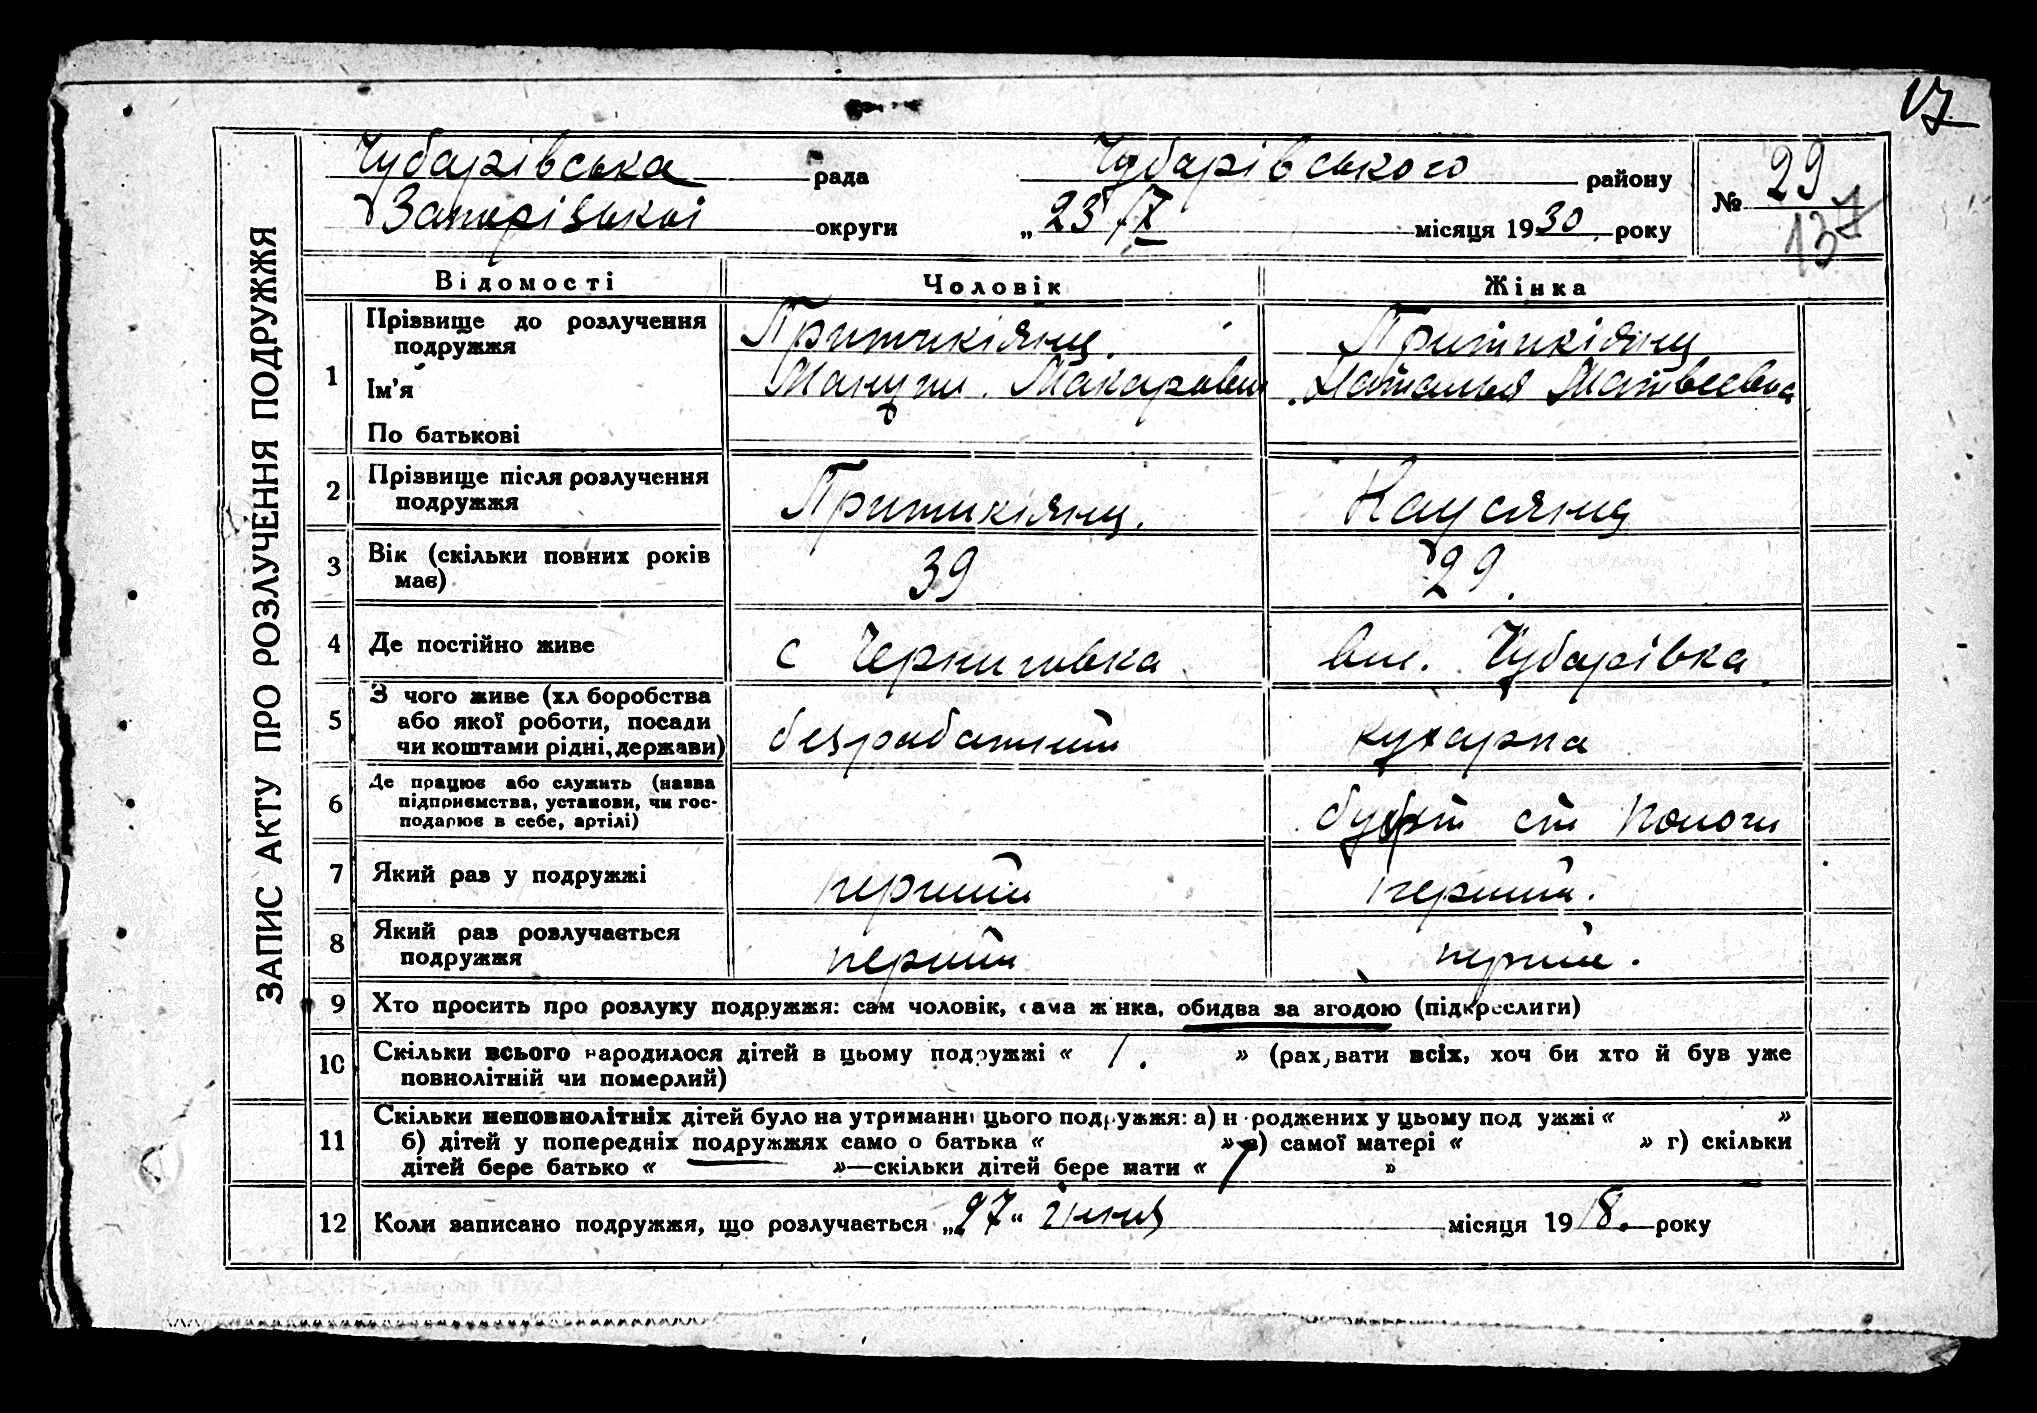 17
ЗАПИС АКТУ ПРО РОЗЛУЧЕННЯ ПОДРУЖЖЯ
Чубарівська рада Чубарівського району
Запорізької округи „23/V місяця 1930 року
№ 29
137
Відомості Чоловік Жінка
1 Прізвище до розлучення подружжя
Ім'я Макарович Наталья Матвеевна
По батькові
2 Прізвище після розлучення
подружжя
3 Вік (скільки повних років 39 29.
має)
4 Де постійно живе с Черниговка вел. Чубарівка
5 З чого живе (хліборобства
або якої роботи, посади
чи коштами рідні, держави) безработний кухарка
6 Де працює або служить (назва
підприємства, установи, чи гос-
подарює в себе, артілі) буфет ст Пологи
7 Який раз у подружжі перший перший.
8 Який раз розлучається
подружжя перший перший.
9 Хто просить про розлуку подружжя: сам чоловік, сама жінка, обидва за згодою (підкреслити)
10 Скільки всього народилося дітей в цьому подружжі « 1. » (рахувати всіх, хоч би хто й був уже
повнолітній чи померлий)
11 Скільки неповнолітніх дітей було на утриманні цього подружжя: а) народжених у цьому подружжі « »
б) дітей у попередніх подружжях самого батька « » в) самої матері « » г) скільки
дітей бере батько « »—скільки дітей бере мати « »
12 Коли записано подружжя, що розлучається „27“ місяця 1918. року